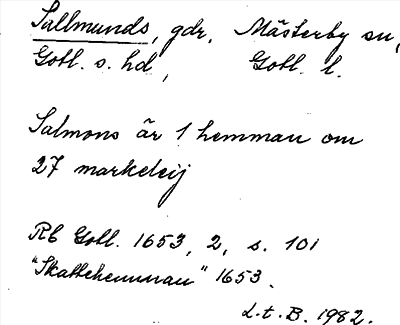 Sallmunds, gdr, Mästerby sn,
Gotl. s. hd, Gotl. l.
Salmons är 1 hemman om
27 markeleij
Rb Gotl. 1653, 2, s. 101
"Skattehemman" 1653.
L.t.B. 1982.